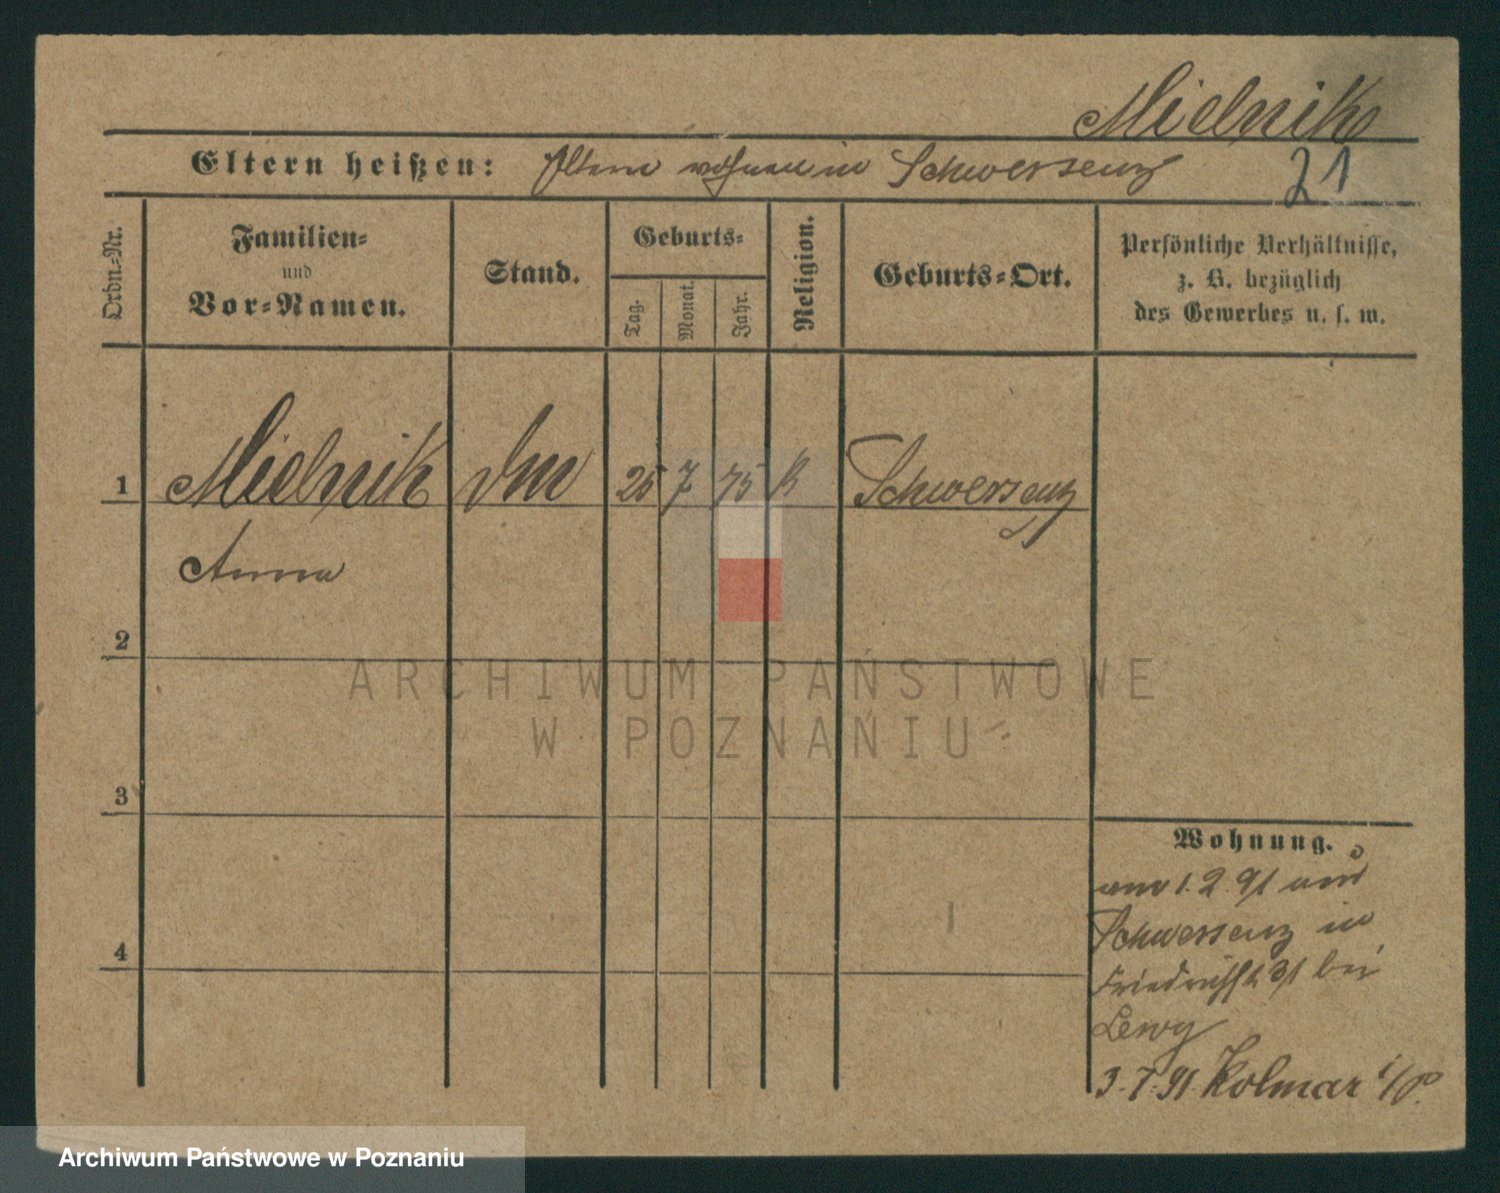 Mielnik
Eltern heißen: Eltern wohnen in Schwersenz
21
Ordn.-Nr.
Familien-
und
Vor-Namen.
Stand.
Geburts-
Tag.
Monat.
Jahr.
Religion.
Geburts-Ort.
Persönliche Verhältnisse,
z. B. bezüglich
des Gewerbes u. s. w.
1 Mielnik 25 7 75 K Schwersenz
Anna
2
ARCHIWUM PAŃSTWOWE
W POZNANIU
3
Wohnung.
am 1.2.91 aus
Schwersenz in
Friedrichst 31 bei
4
Lewy
3.7.91 Kolmar i/P.
Archiwum Państwowe w Poznaniu